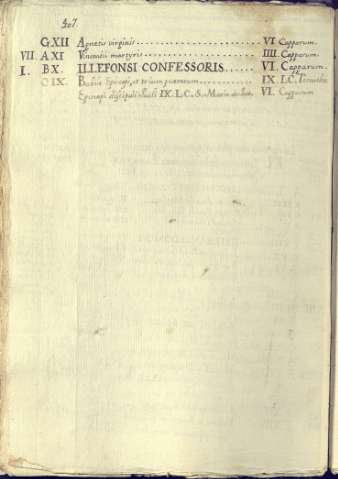 407
G.XII Agnetis virginis VI Capparum.
VII A.XI Vincentii martyris IIII Capparum.
I. B.X. ILLEFONSI CONFESSORIS VI. Capparum.
C IX. Episcopi, et IX. L.C.
Episcopi discipuli Pauli IX. L.C. S. Maria de VI. Capparum